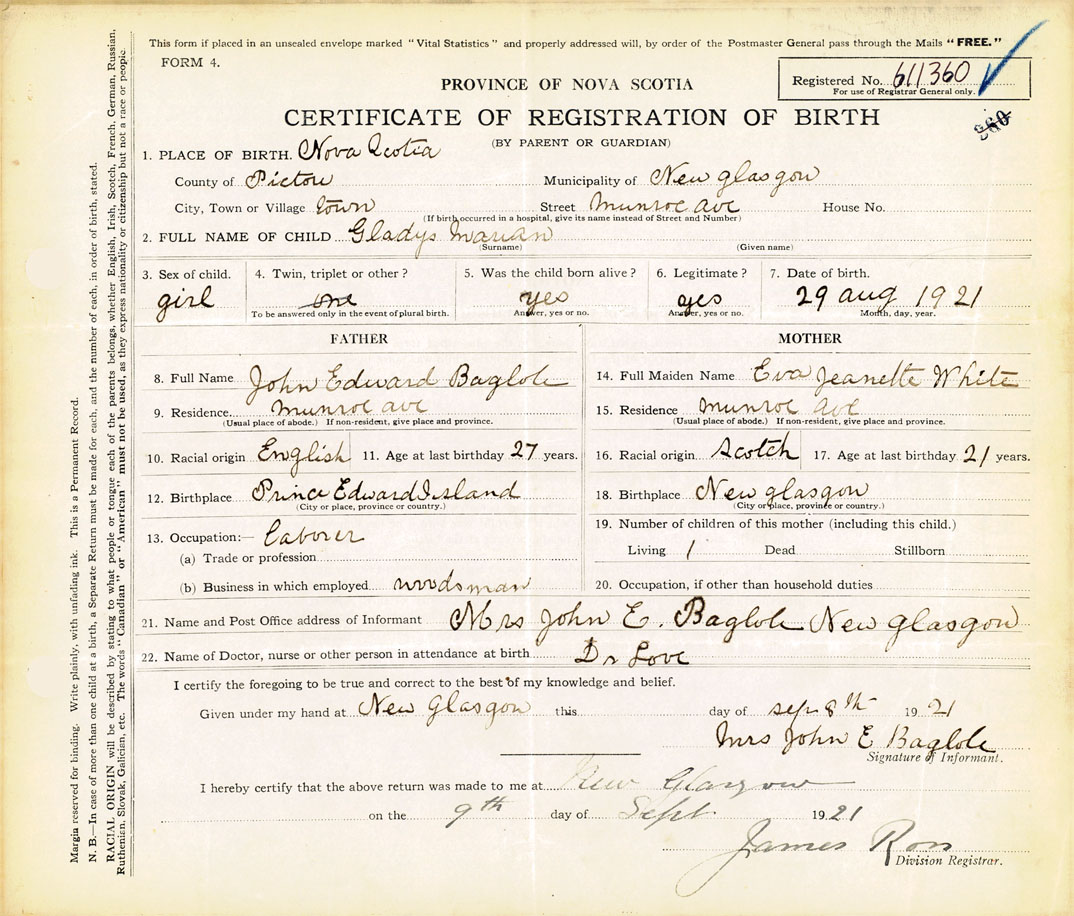 This form if placed in an unsealed envelope marked "Vital Statistics" and properly addressed will, by order of the Postmaster General pass through the Mails "FREE."
FORM 4.
Registered No. 611360
For use of Registrar General only.
PROVINCE OF NOVA SCOTIA
CERTIFICATE OF REGISTRATION OF BIRTH
360
(BY PARENT OR GUARDIAN)
1. PLACE OF BIRTH. Nova Scotia
County of Pictou Municipality of New glasgow
City, Town or Village town Street Munroe ave House No.
(If birth occurred in a hospital, give its name instead of Street and Number)
2. FULL NAME OF CHILD Gladys Marian
(Surname) (Given name)
3. Sex of child. 4. Twin, triplet or other? 5. Was the child born alive? 6. Legitimate? 7. Date of birth.
girl one yes yes 29 aug 1921
To be answered only in the event of plural birth. Answer, yes or no. Answer, yes or no. Month, day, year.
FATHER MOTHER
8. Full Name John Edward Baglole 14. Full Maiden Name Eva Jeanette White
9. Residence. munroe ave 15. Residence munroe ave
(Usual place of abode.) If non-resident, give place and province. (Usual place of abode.) If non-resident, give place and province.
10. Racial origin English 11. Age at last birthday 27 years. 16. Racial origin Scotch 17. Age at last birthday 21 years.
12. Birthplace Prince Edward Island 18. Birthplace New glasgow
(City or place, province or country.) (City or place, province or country.)
13. Occupation:— Laborer 19. Number of children of this mother (including this child.)
(a) Trade or profession Living 1 Dead Stillborn
(b) Business in which employed woodsman 20. Occupation, if other than household duties
21. Name and Post Office address of Informant Mrs John E. Baglole New glasgow
22. Name of Doctor, nurse or other person in attendance at birth Dr Love
I certify the foregoing to be true and correct to the best of my knowledge and belief.
Given under my hand at New Glasgow this day of sep 8th 1921
Mrs John E Baglole
Signature of Informant.
I hereby certify that the above return was made to me at New Glasgow
on the 9th day of Sept 1921
James Ross
Division Registrar.
Margia reserved for binding. Write plainly, with unfading ink. This is a Permanent Record.
N. B.—In case of more than one child at a birth, a Separate Return must be made for each, and the number of each, in order of birth, stated.
RACIAL ORIGIN will be described by stating to what people or tongue each of the parents belongs, whether English, Irish, Scotch, French, German, Russian,
Ruthenian, Slovak, Galician, etc. The words "Canadian" or "American" must not be used, as they express nationality or citizenship but not a race or people.